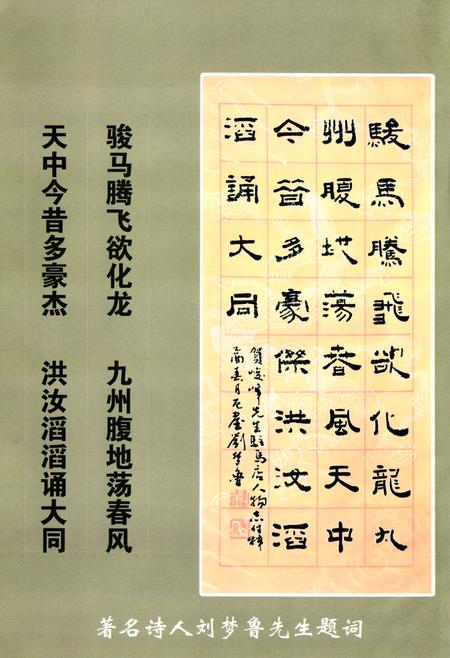 駿馬騰飛欲化龍九
州腹地荡春風天中
今昔多豪傑洪汝滔
滔誦大同
賀峻峰先生駐馬店人物志付梓
劉夢魯
骏马腾飞欲化龙 九州腹地荡春风
天中今昔多豪杰 洪汝滔滔诵大同
著名诗人刘梦鲁先生题词